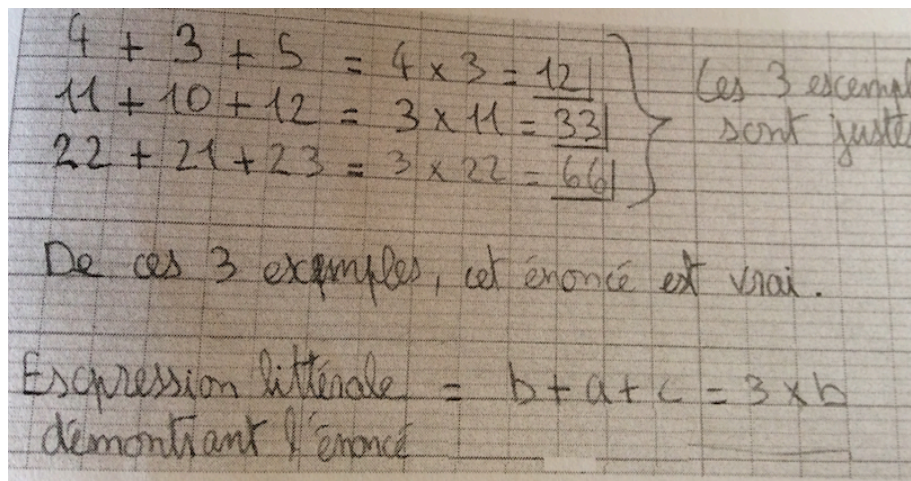 4 + 3 + 5 = 4 x 3 = 12
11 + 10 + 12 = 3 x 11 = 33
22 + 21 + 23 = 3 x 22 = 66
Ces 3 escempl
sont juste
De ces 3 exemples, cet énoncé est vrai.
Escpression littérale = b + a + c = 3 x b
démontrant l'énoncé